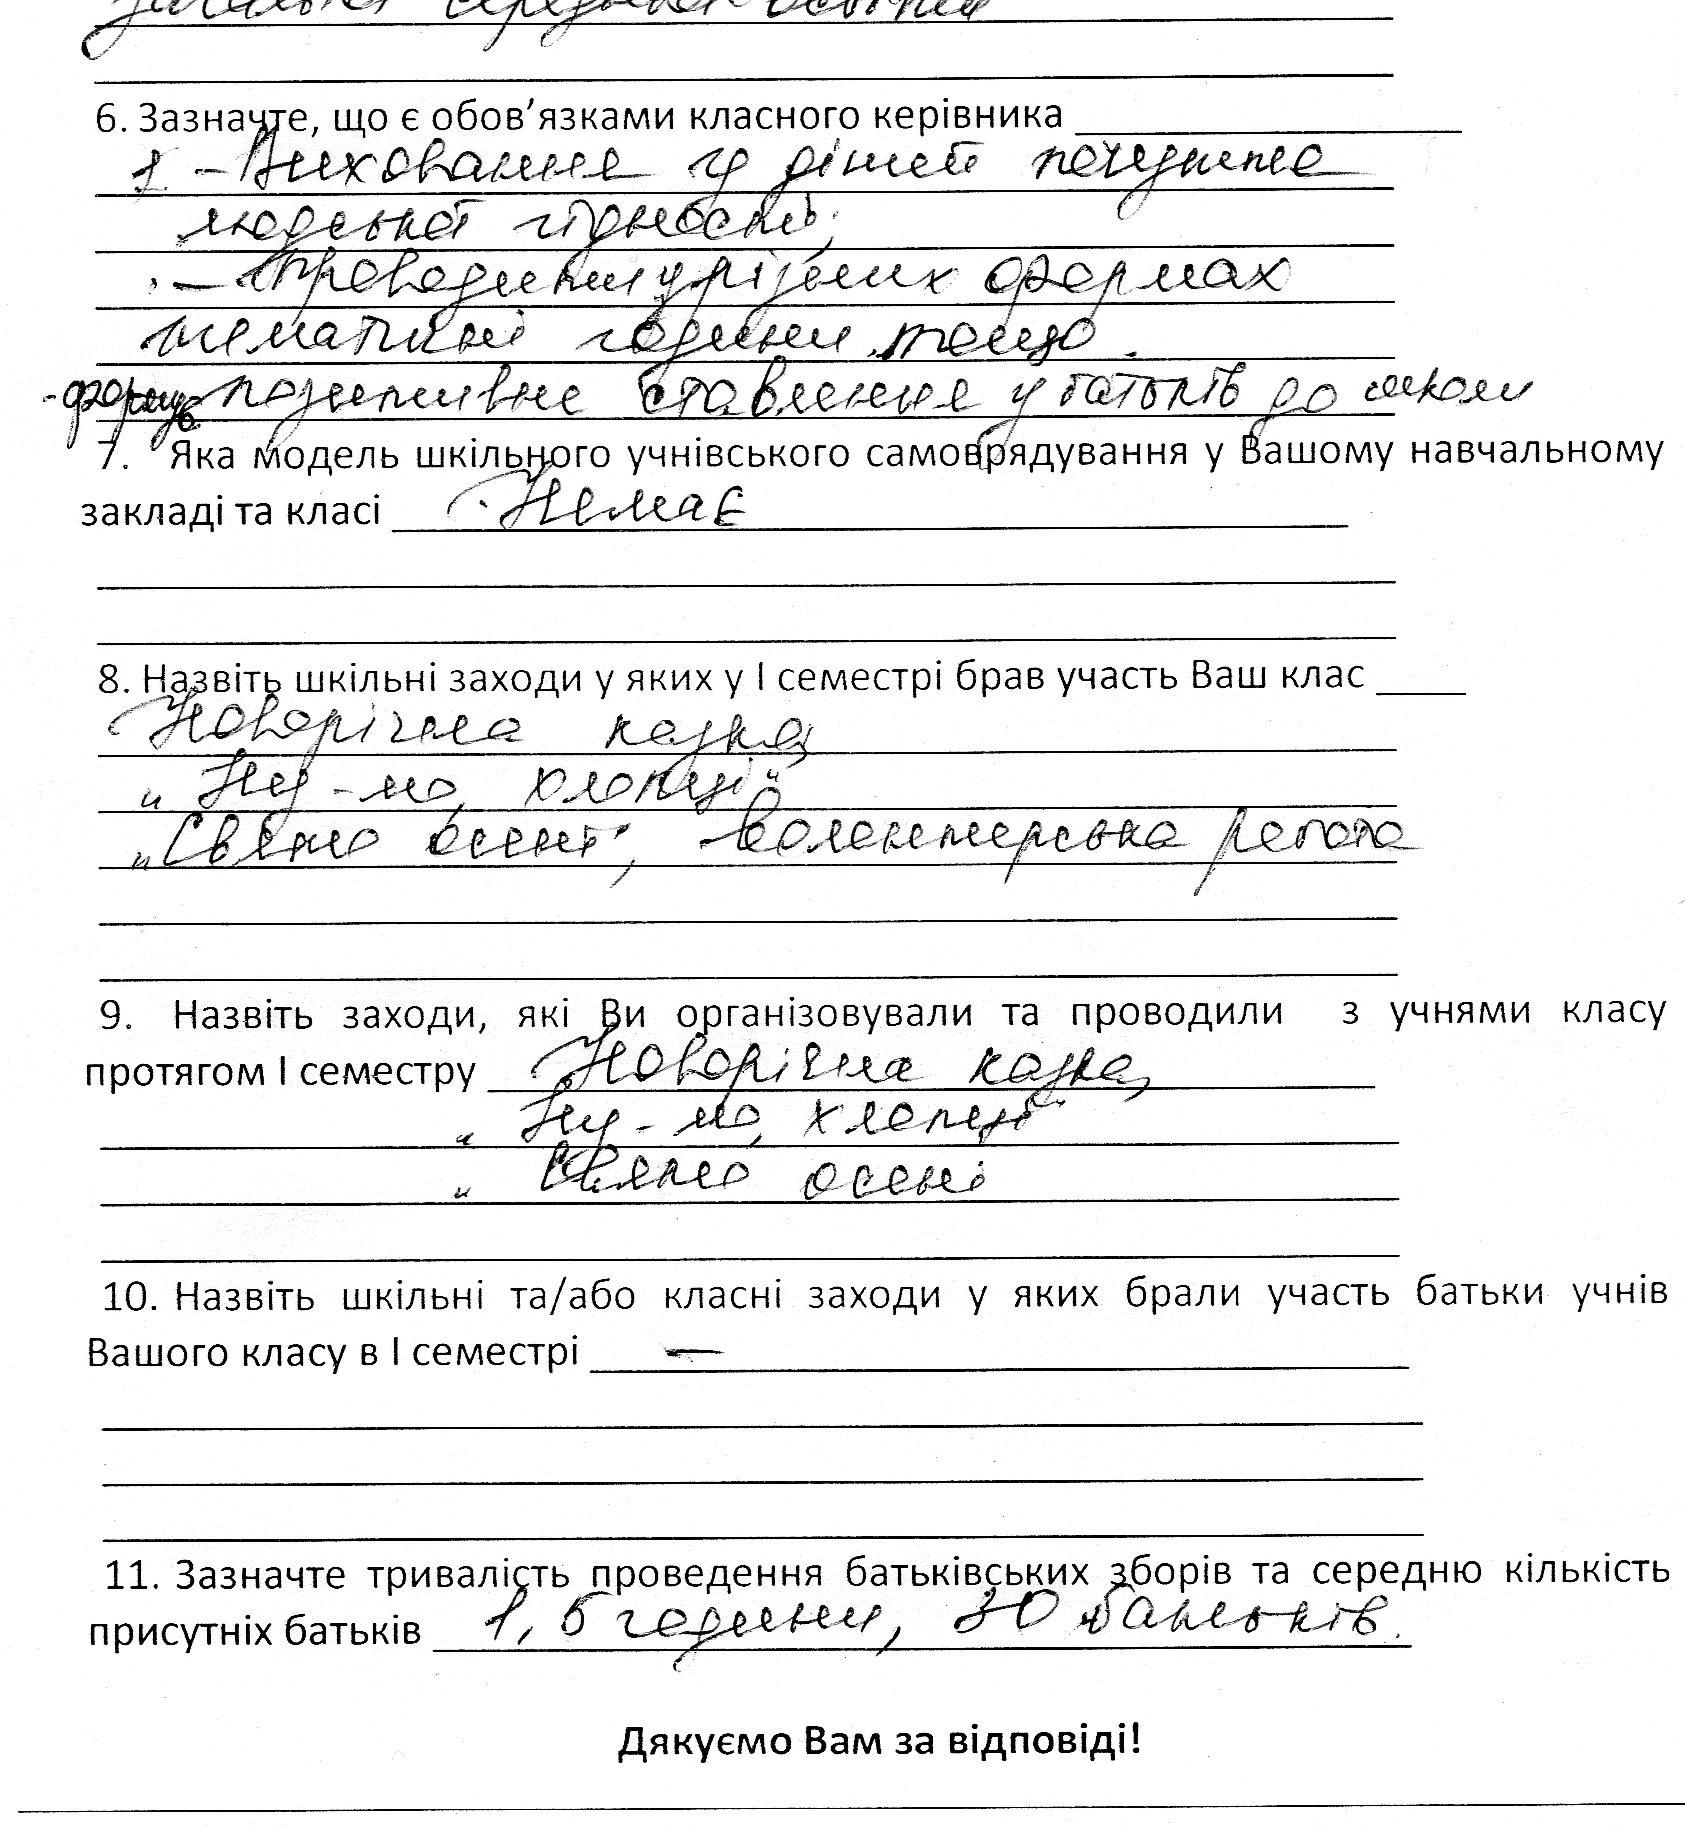 загальна середньої освіти
6. Зазначте, що є обов’язками класного керівника
1. - Виховання у дітей почуття
людської гідності;
- Проводити у різних формах
тематичні години тощо.
- формує позитивне ставлення у батьків до школи
7. Яка модель шкільного учнівського самоврядування у Вашому навчальному
закладі та класі Немає
8. Назвіть шкільні заходи у яких у І семестрі брав участь Ваш клас
Новорічна казка,
„Ну-мо, хлопці“
„Свято осені“, волонтерська робота
9. Назвіть заходи, які Ви організовували та проводили з учнями класу
протягом І семестру Новорічна казка,
„Ну-мо, хлопці“
„Свято осені
10. Назвіть шкільні та/або класні заходи у яких брали участь батьки учнів
Вашого класу в І семестрі —
11. Зазначте тривалість проведення батьківських зборів та середню кількість
присутніх батьків 1,5 години, 30 батьків.
Дякуємо Вам за відповіді!